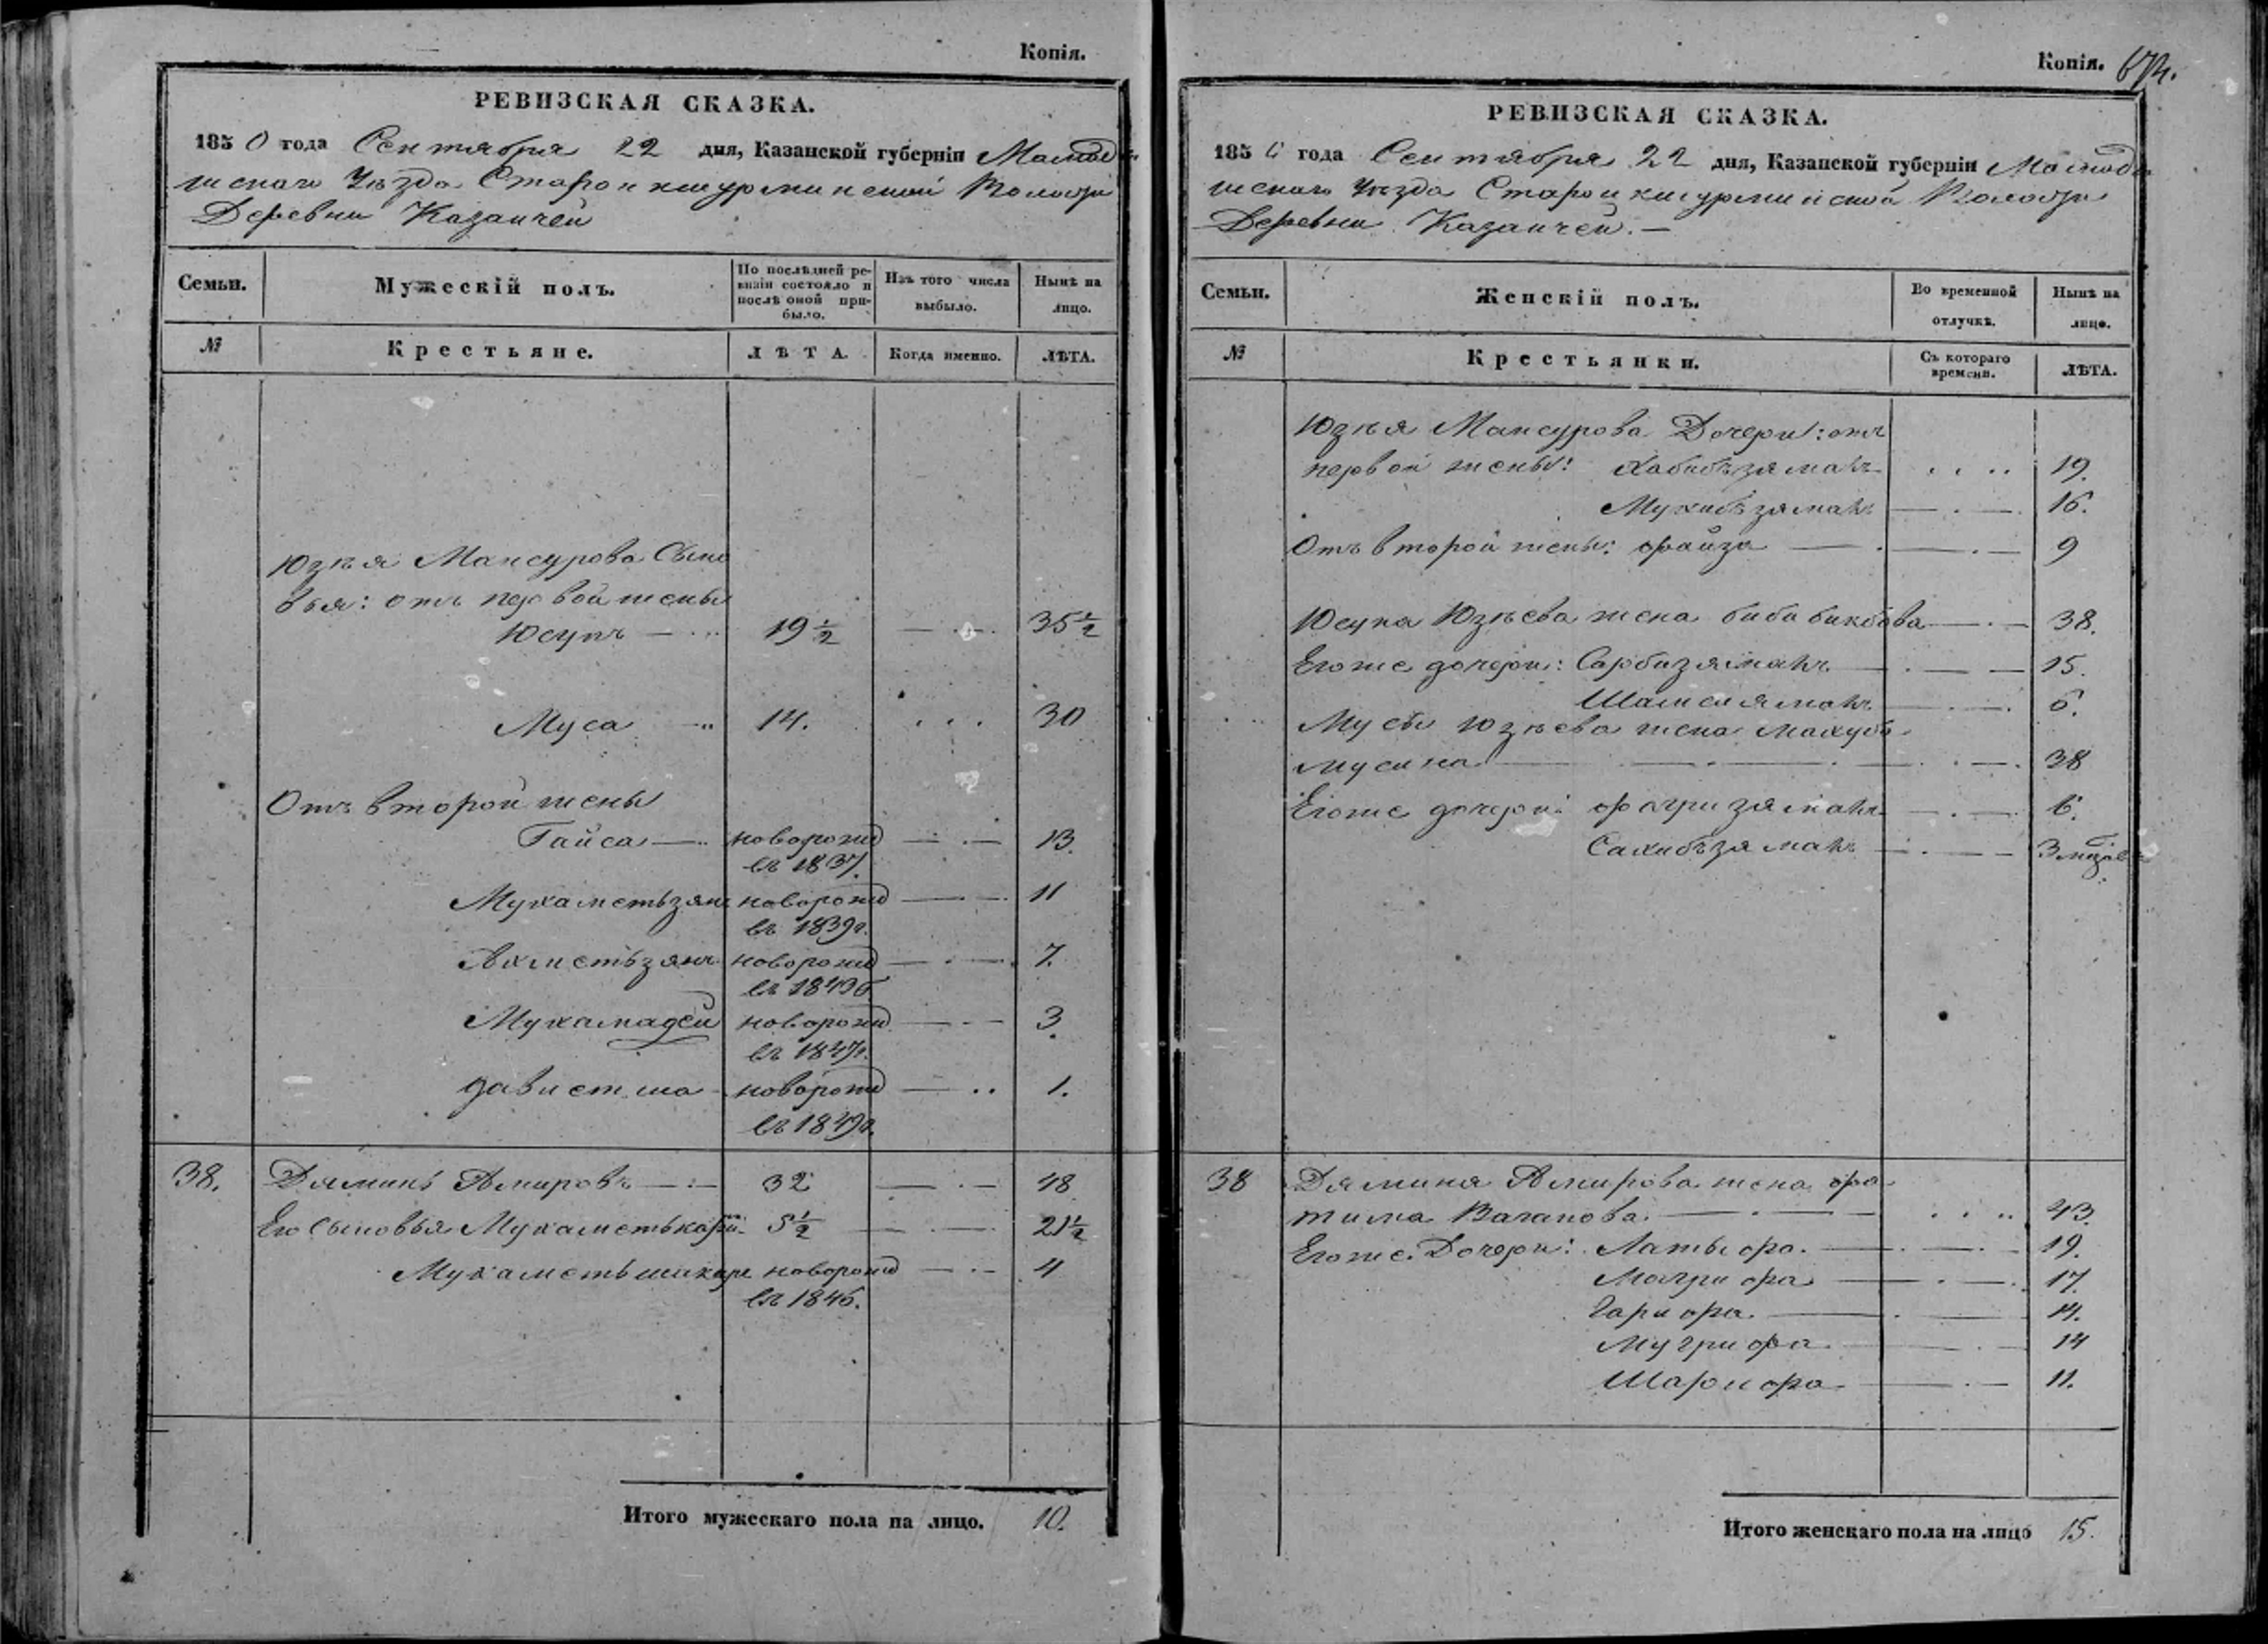 Копія.
РЕВИЗСКАЯ СКАЗКА.
1850 года Сентября 22 дня, Казанской губерніи Мамады
шскаго Уѣзда Староикшурминской Волости
Деревни Казанчей
Семьи. Мужескій полъ. По послѣдней ре-визіи состояло и послѣ оной при-было. Изъ того числа выбыло. Нынѣ на лицо.
№ Крестьяне. ЛѢТА. Когда именно. ЛѢТА.
Юзѣя Мансурова Сыно
вья: отъ первой жены
Юсупъ 19½ 35½
Муса 14. 30
Отъ второй жены
Гайса новорожд 13.
въ 1837.
Мухаметьзянъ новорожд 11
въ 1839г.
Ахметьзянъ новорожд 7.
въ 1843г.
Мухамадей новорожд 3.
въ 1847г.
Давлетша новорожд 1.
въ 1849г.
38. Дяминъ Амировъ 32 48
Его сыновья Мухаметькарим. 5½ 21½
Мухаметьшакир новорожд 4
въ 1846.
Итого мужескаго пола на лицо. 10.
Копія. 674.
РЕВИЗСКАЯ СКАЗКА.
1850 года Сентября 22 дня, Казанской губерніи Мамады
шскаго Уѣзда Староикшурминской Волости
Деревни Казанчей.
Семьи. Женскій полъ. Во временной отлучкѣ. Нынѣ на лицо.
№ Крестьянки. Съ котораго времени. ЛѢТА.
Юзѣя Мансурова Дочери: отъ
первой жены: Хабибъзяманъ 19.
Мухибзяманъ 16.
Отъ второй жены: Файза 9
Юсупа Юзѣева жена биби бикбова 38.
Егоже дочери: Сарбизяманъ 15.
Шамсіяманъ 6.
Мусы Юзѣева жена Махуб
Мусина 38
Егоже дочери: Фахризяманъ 6.
Сахибъзяманъ 3 мѣсяц
38 Дямина Амирова жена Фа
тима Вагапова. 43.
Егоже Дочери: Латыфа. 19.
Магрифа 17.
Гарифа. 14.
Мугрифа 14
Шарифа 11.
Итого женскаго пола на лицо 15.